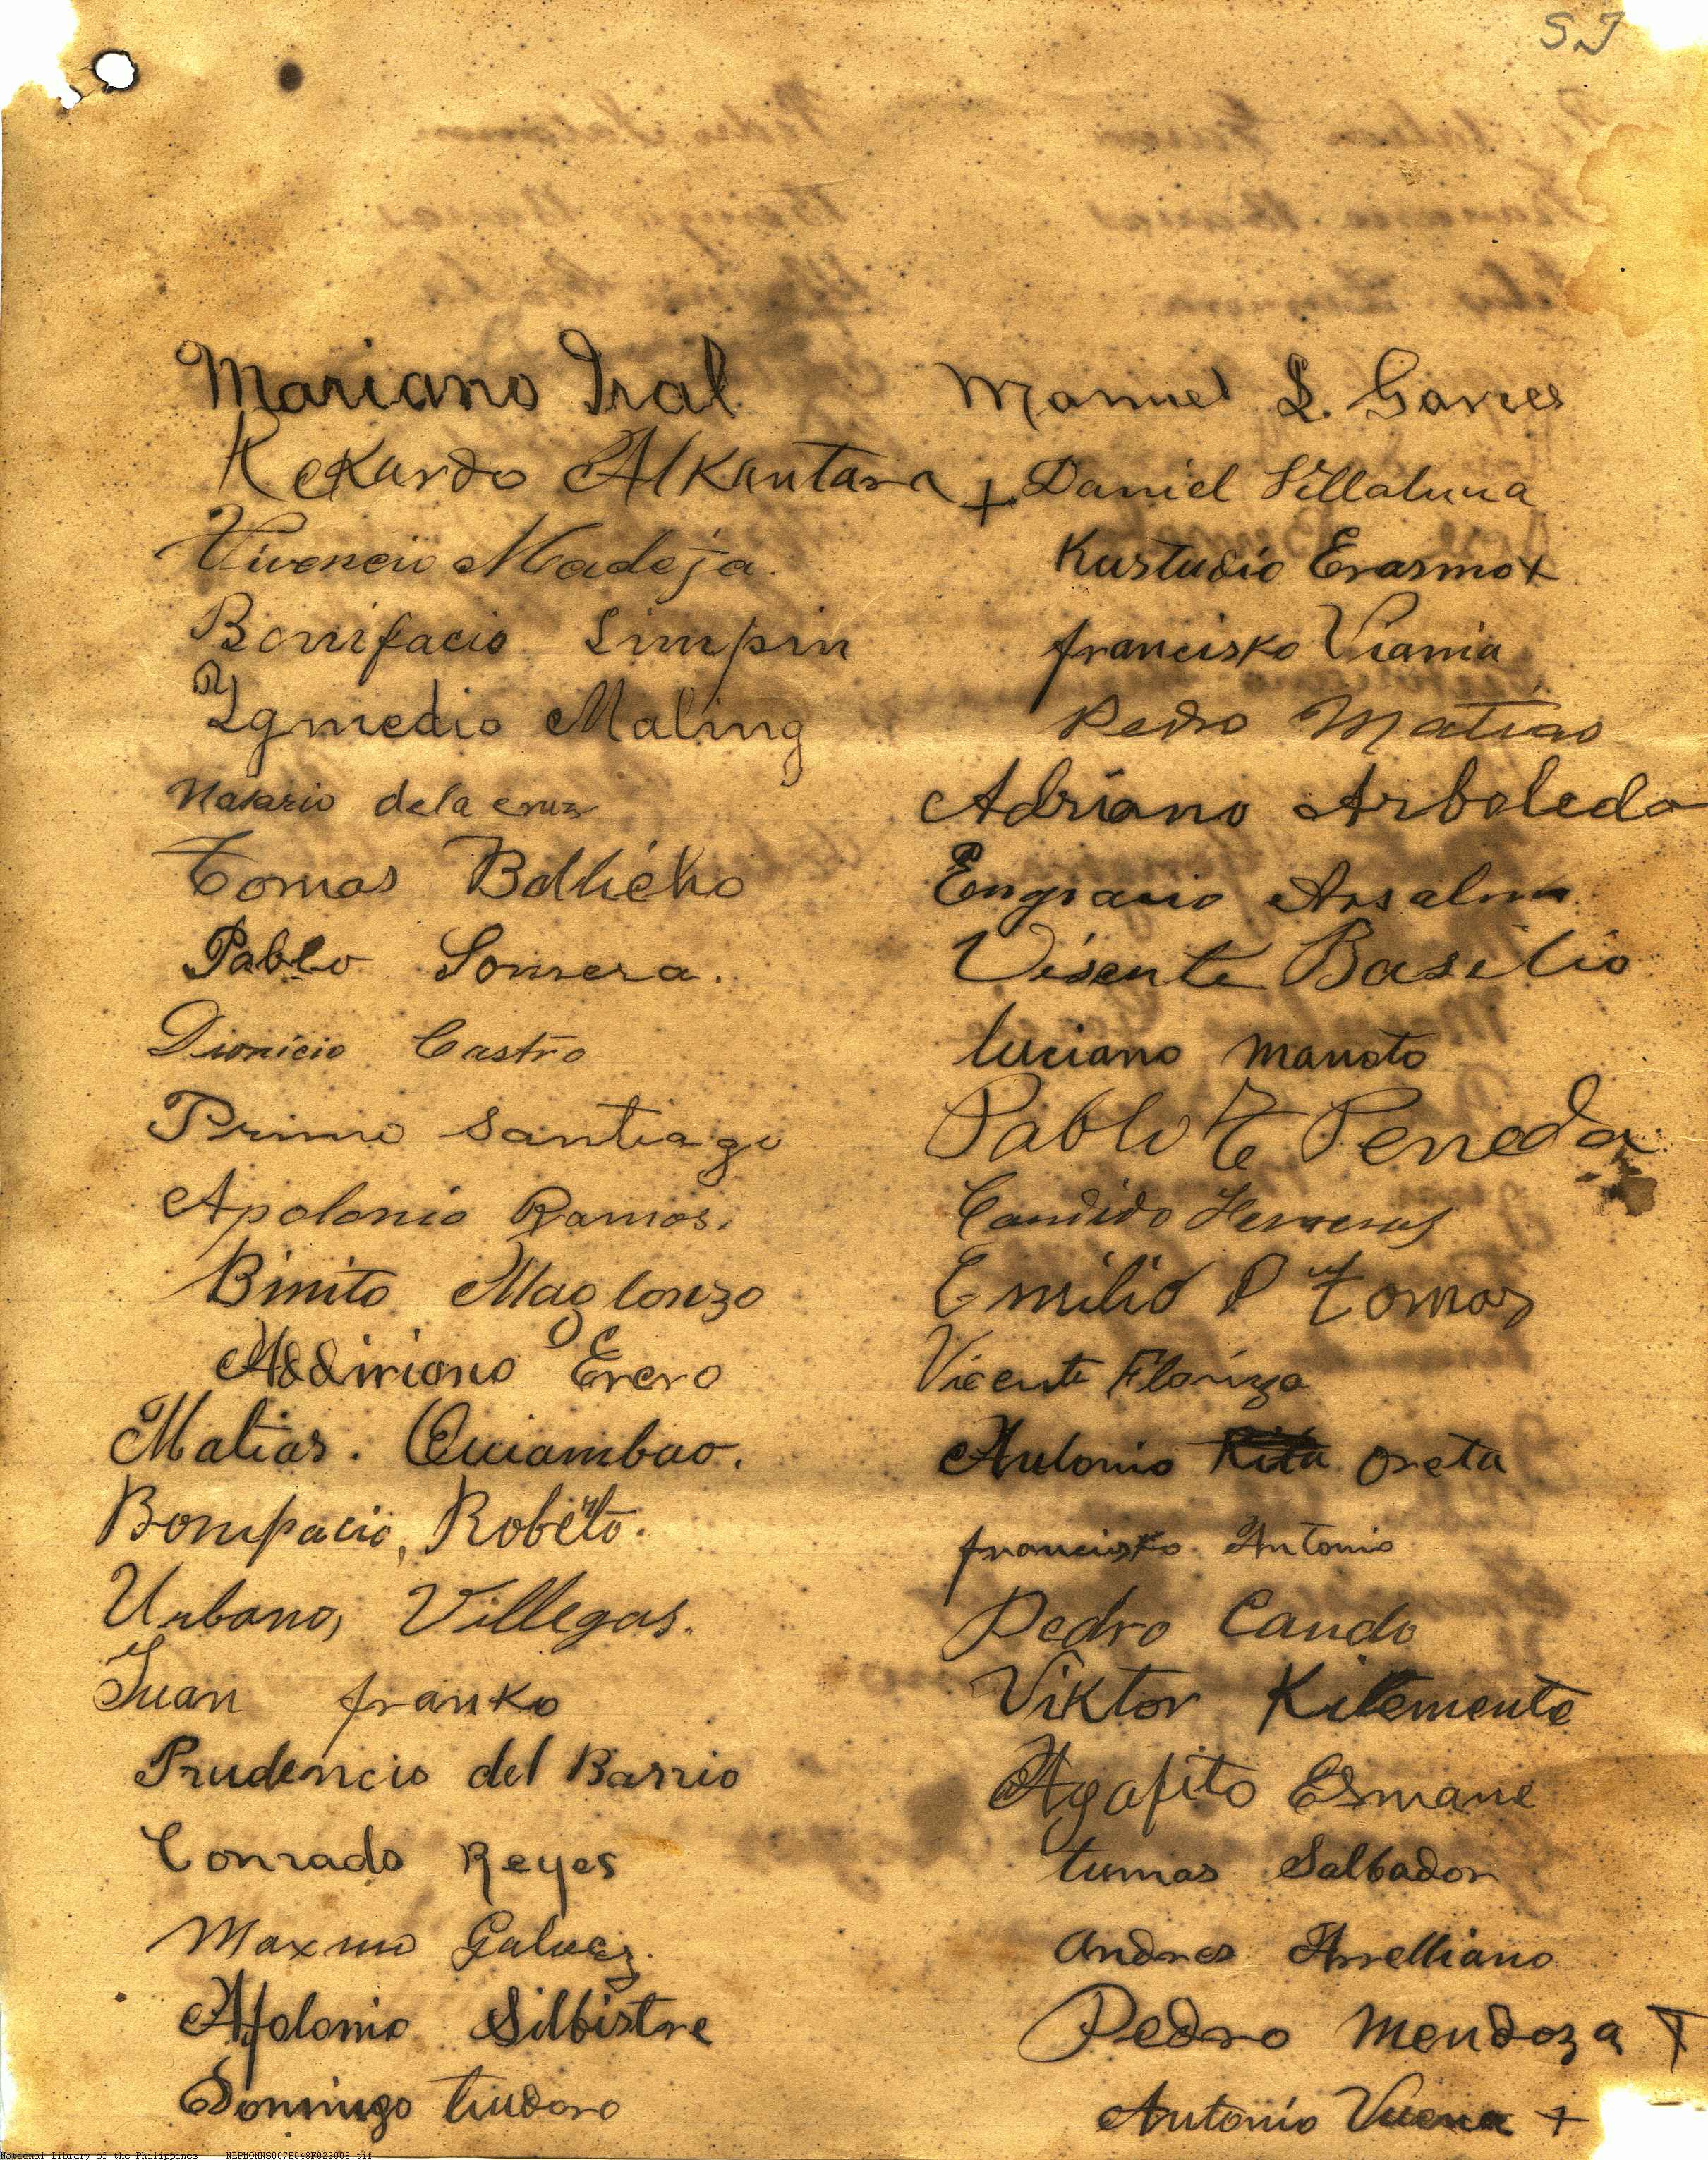 SJ
Mariano Iral
Rekardo Alkantara
Vivencio Madeja
Bonifacio Limpin
Ygmedio Maling
Nasario dela cruz
Tomas
Pablo Somera.
Dionicio Castro
Primo Santiago
Apolonio Ramos.
Binito Maglonzo
Addiriano Erero
Matias. Quiambao.
Bonipacio, Roberto.
Urbano, Villegas.
Juan franko
Prudencio del Barrio
Conrado Reyes
Maximo Galvez
Apolonio Silbistre
Domingo tiudoro
Manuel L. Garces
+ Daniel Villaluna
Kustudio Erasmo +
francisko Viania
Pedro Matias
Adriano Arboleda
Engracio
Visente Basilio
luciano manoto
Pablo T Peneda
Candido Herreras
Emilio P Tomas
Vicente Florizza
Antonio Rita Oreta
francisko Antonio
Pedro Cando
Viktor Kilemente
Agapito Esmane
tumas Salbador
Andres Arrelliano
Pedro Mendoza +
Antonio +
National Library of the Philippines NLPMQMNS007B048F023008.tif